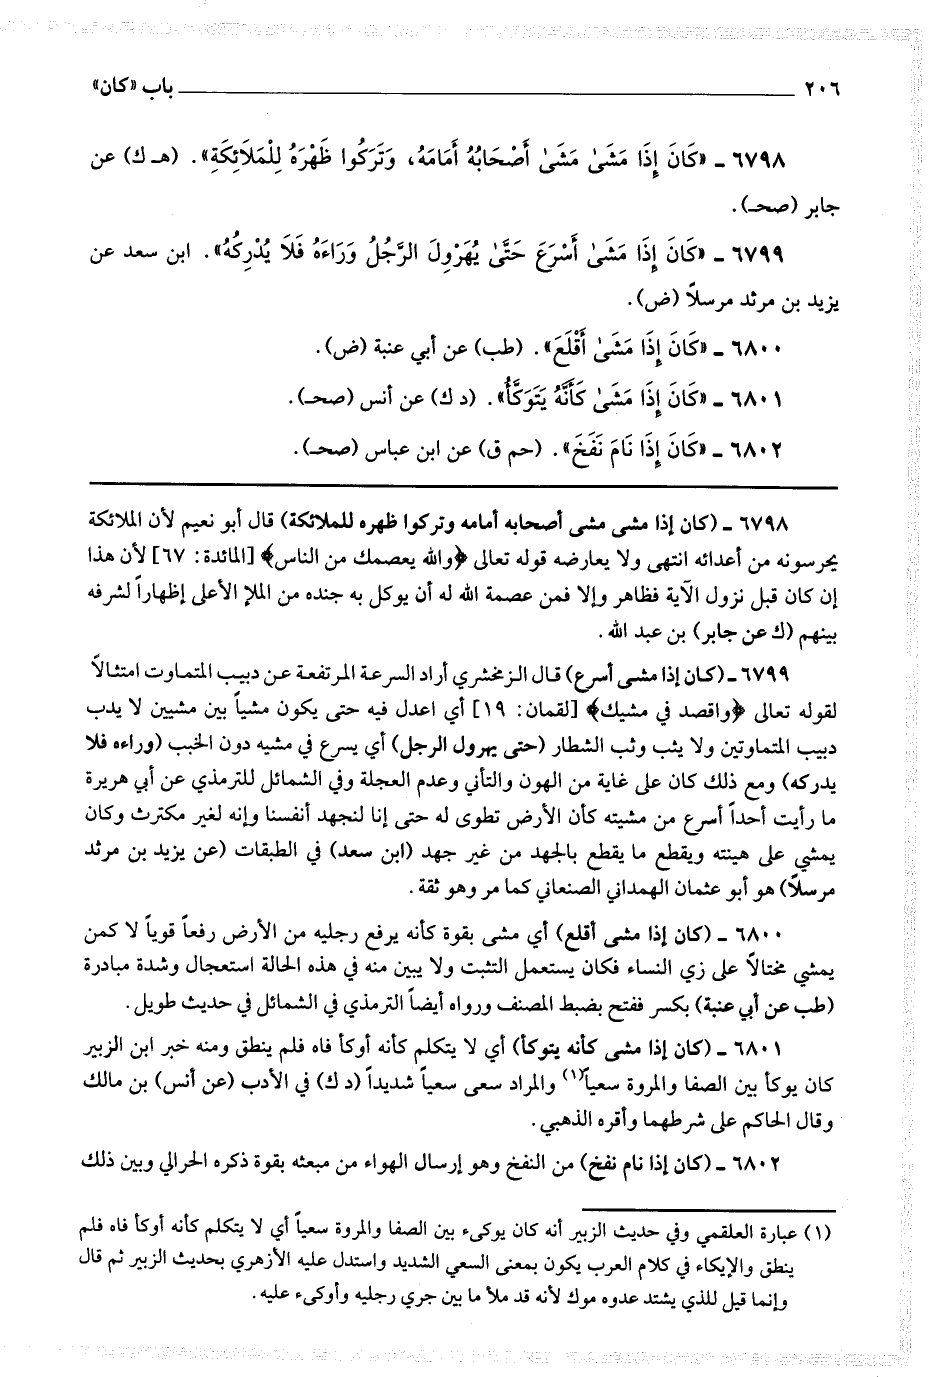 ٢٠٦ ــــــــــ باب «كان»
٦٧٩٨ ـ «كَانَ إِذَا مَشَىٰ مَشَىٰ أَصْحَابُهُ أَمَامَهُ، وَتَرَكُوا ظَهْرَهُ لِلْمَلَائِكَةِ». (هـ ك) عن
جابر (صحـ).
٦٧٩٩ ـ «كَانَ إِذَا مَشَىٰ أَسْرَعَ حَتَّىٰ يُهَرْوِلَ الرَّجُلُ وَرَاءَهُ فَلَا يُدْرِكُهُ». ابن سعد عن
يزيد بن مرثد مرسلاً (ض).
٦٨٠٠ ـ «كَانَ إِذَا مَشَىٰ أَقْلَعَ». (طب) عن أبي عنبة (ض).
٦٨٠١ ـ «كَانَ إِذَا مَشَىٰ كَأَنَّهُ يَتَوَكَّأُ». (د ك) عن أنس (صحـ).
٦٨٠٢ ـ «كَانَ إِذَا نَامَ نَفَخَ». (حم ق) عن ابن عباس (صحـ).
٦٧٩٨ ـ (كان إذا مشى مشى أصحابه أمامه وتركوا ظهره للملائكة) قال أبو نعيم لأن الملائكة
يحرسونه من أعدائه انتهى ولا يعارضه قوله تعالى ﴿والله يعصمك من الناس﴾ [المائدة: ٦٧] لأن هذا
إن كان قبل نزول الآية فظاهر وإلا فمن عصمة الله له أن يوكل به جنده من الملإ الأعلى إظهاراً لشرفه
بينهم (ك عن جابر) بن عبد الله.
٦٧٩٩ ـ (كان إذا مشى أسرع) قال الزمخشري أراد السرعة المرتفعة عن دبيب المتماوت امتثالاً
لقوله تعالى ﴿واقصد في مشيك﴾ [لقمان: ١٩] أي اعدل فيه حتى يكون مشياً بين مشيين لا يدب
دبيب المتماوتين ولا يثب وثب الشطار (حتى يهرول الرجل) أي يسرع في مشيه دون الخبب (وراءه فلا
يدركه) ومع ذلك كان على غاية من الهون والتأني وعدم العجلة وفي الشمائل للترمذي عن أبي هريرة
ما رأيت أحداً أسرع من مشيته كأن الأرض تطوى له حتى إنا لنجهد أنفسنا وإنه لغير مكترث وكان
يمشي على هينته ويقطع ما يقطع بالجهد من غير جهد (ابن سعد) في الطبقات (عن يزيد بن مرثد
مرسلاً) هو أبو عثمان الهمداني الصنعاني كما مر وهو ثقة.
٦٨٠٠ ـ (كان إذا مشى أقلع) أي مشى بقوة كأنه يرفع رجليه من الأرض رفعاً قوياً لا كمن
يمشي مختالاً على زي النساء فكان يستعمل التثبت ولا يبين منه في هذه الحالة استعجال وشدة مبادرة
(طب عن أبي عنبة) بكسر ففتح بضبط المصنف ورواه أيضاً الترمذي في الشمائل في حديث طويل.
٦٨٠١ ـ (كان إذا مشى كأنه يتوكأ) أي لا يتكلم كأنه أوكأ فاه فلم ينطق ومنه خبر ابن الزبير
كان يوكأ بين الصفا والمروة سعياً(١) والمراد سعى سعياً شديداً (د ك) في الأدب (عن أنس) بن مالك
وقال الحاكم على شرطهما وأقره الذهبي.
٦٨٠٢ ـ (كان إذا نام نفخ) من النفخ وهو إرسال الهواء من مبعثه بقوة ذكره الحرالي وبين ذلك
(١) عبارة العلقمي وفي حديث الزبير أنه كان يوكىء بين الصفا والمروة سعياً أي لا يتكلم كأنه أوكأ فاه فلم
ينطق والإيكاء في كلام العرب يكون بمعنى السعي الشديد واستدل عليه الأزهري بحديث الزبير ثم قال
وإنما قيل للذي يشتد عدوه موك لأنه قد ملأ ما بين جري رجليه وأوكىء عليه.